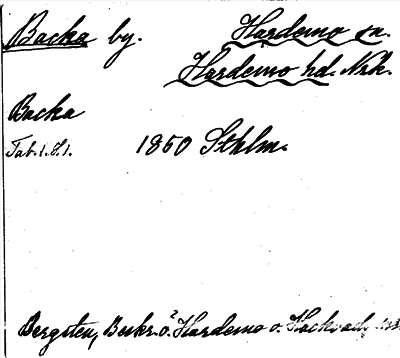 Backa by. Hardemo sn.
Hardemo hd. Nrk.
Backa
Tab. 1. S. 1. 1850 Sthlm.
Bergsten, Beskr. o. Hardemo o. Hackvad,